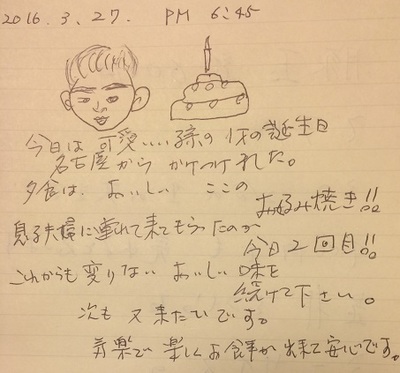 2016.3.27. PM 6:45
今日は可愛いい孫の1才の誕生日
名古屋からかけつけれた。
夕食は、おいしい ここの
お好み焼き!!
息子夫婦に連れて来てもらったのが
今日2回目!!
これからも変りない おいしい味を
続けて下さい。
次も又来たいです。
気楽で楽しくお食事が出来て安心です。